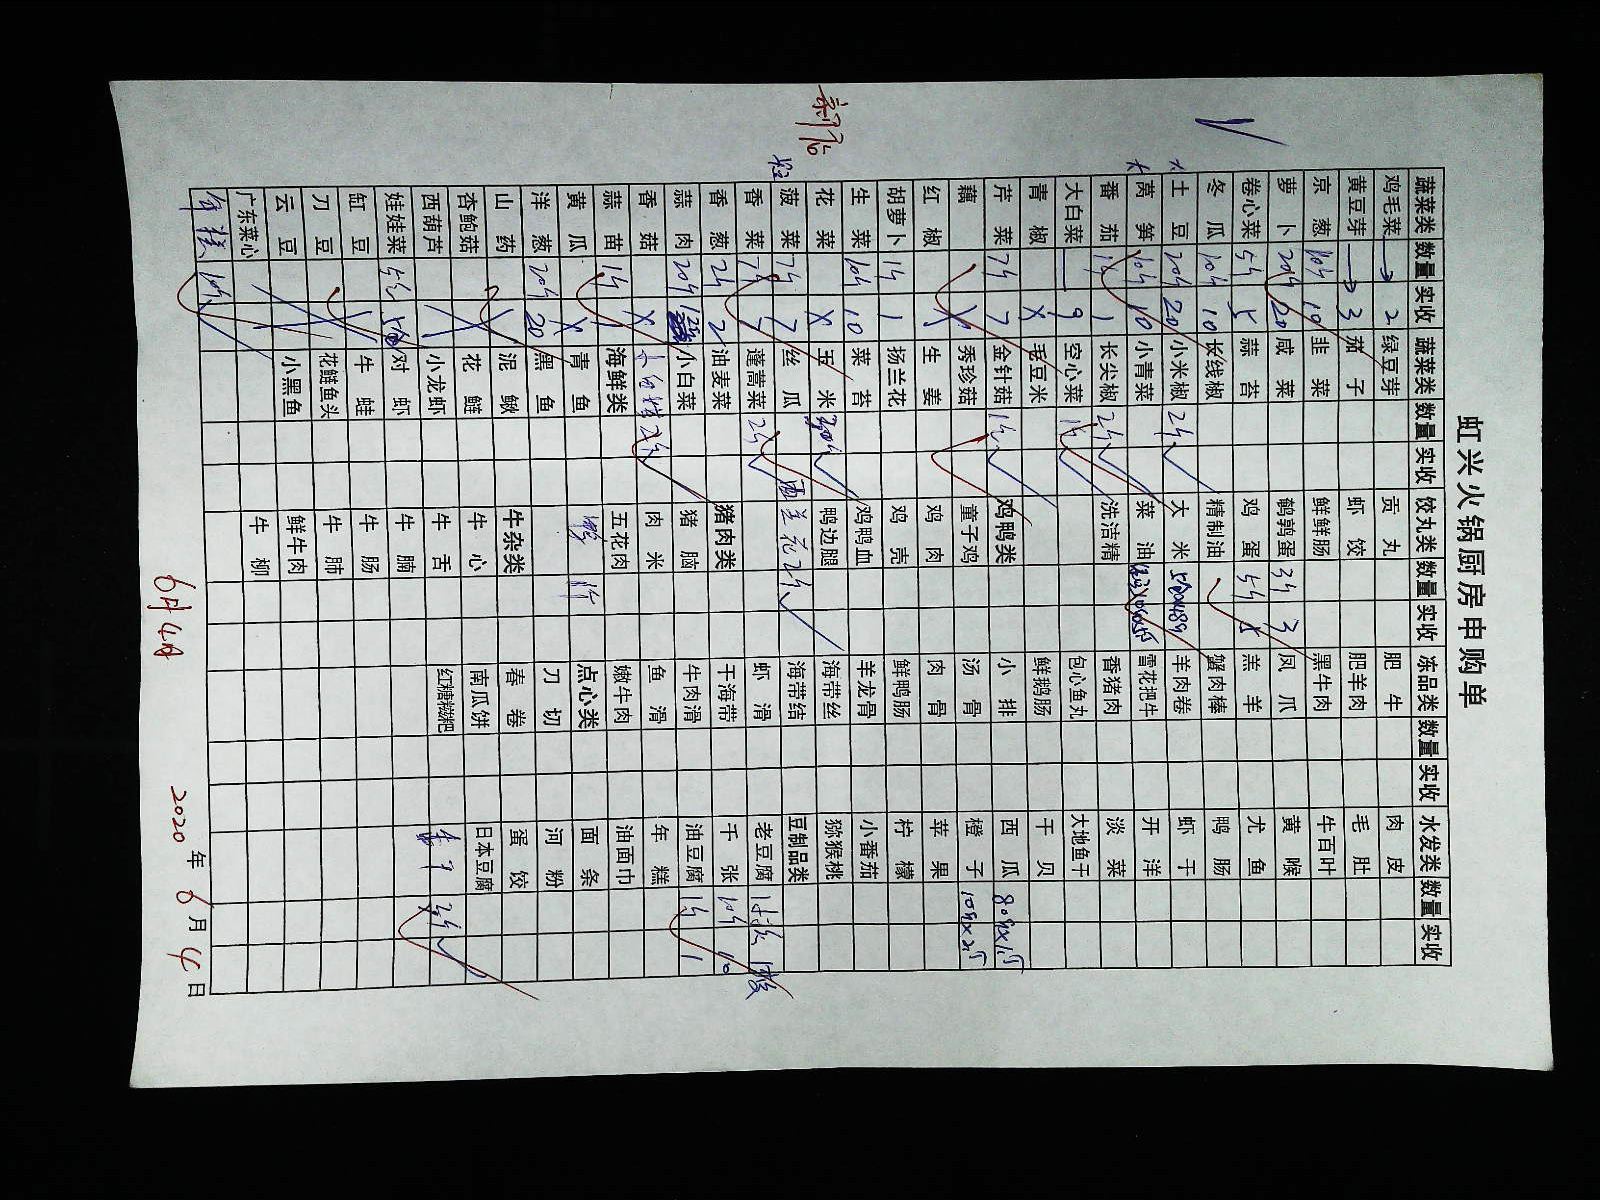 虹兴火锅厨房申购单
蔬菜类 数量 实收 蔬菜类 数量 实收 饺丸类 数量 实收 冻品类 数量 实收 水发类 数量 实收
鸡毛菜 2 绿豆芽 贡丸 肥牛 肉皮
黄豆芽 3 茄子 虾饺 肥羊肉 毛肚
京葱 10斤 10 韭菜 鲜鲜肠 黑牛肉 牛百叶
萝卜 20斤 20 咸菜 鹌鹑蛋 3斤 3 凤爪 黄喉
卷心菜 5斤 5 蒜苔 鸡蛋 5斤 羔羊 尤鱼
冬瓜 10斤 10 长线椒 精制油 蟹肉棒 鸭肠
大 土豆 20斤 20 小米椒 2斤 大米 羊肉卷 虾干
大 莴笋 10斤 10 小青菜 菜油 雪花把牛 开洋
番茄 1 长尖椒 2斤 洗洁精 香猪肉 淡菜
大白菜 9 空心菜 1斤 包心鱼丸 大地鱼干
青椒 X 毛豆米 鲜鹅肠 干贝
芹菜 7斤 7 金针菇 1斤 鸡鸭类 小排 西瓜 80斤x1斤
藕 秀珍菇 童子鸡 汤骨 橙子 10斤x2斤
红椒 X 生姜 鸡肉 肉骨 苹果
胡萝卜 1斤 1 扬兰花 鸡壳 鲜鸭肠 柠檬
生菜 10斤 10 菜苔 鸡鸭血 羊龙骨 小番茄
花菜 X 玉米 鸭边腿 海带丝 猕猴桃
菠菜 7斤 7 丝瓜 西兰花 2斤 海带结 豆制品类
香菜 7斤 7 蓬蒿菜 2斤 虾滑 老豆腐 1板 1板
香葱 2斤 2 油麦菜 猪肉类 干海带 千张 10斤 10
蒜肉 20斤 小白菜 猪脑 牛肉滑 油豆腐 1斤 1
香菇 X 2斤 肉米 鱼滑 年糕
蒜苗 1斤 1 海鲜类 五花肉 嫩牛肉 油面巾
黄瓜 X 青鱼 鸭 1斤 点心类 面条
洋葱 20斤 20 黑鱼 刀切 河粉
山药 泥鳅 牛杂类 春卷 蛋饺
杏鲍菇 花鲢 牛心 南瓜饼 日本豆腐
西葫芦 小龙虾 牛舌 红糖糍粑 2斤
娃娃菜 对虾 牛腩
缸豆 牛蛙 牛肠
刀豆 花鲢鱼头 牛肺
云豆 小黑鱼 鲜牛肉
广东菜心 牛柳
年糕 10斤
6月4日
2020年6月4日